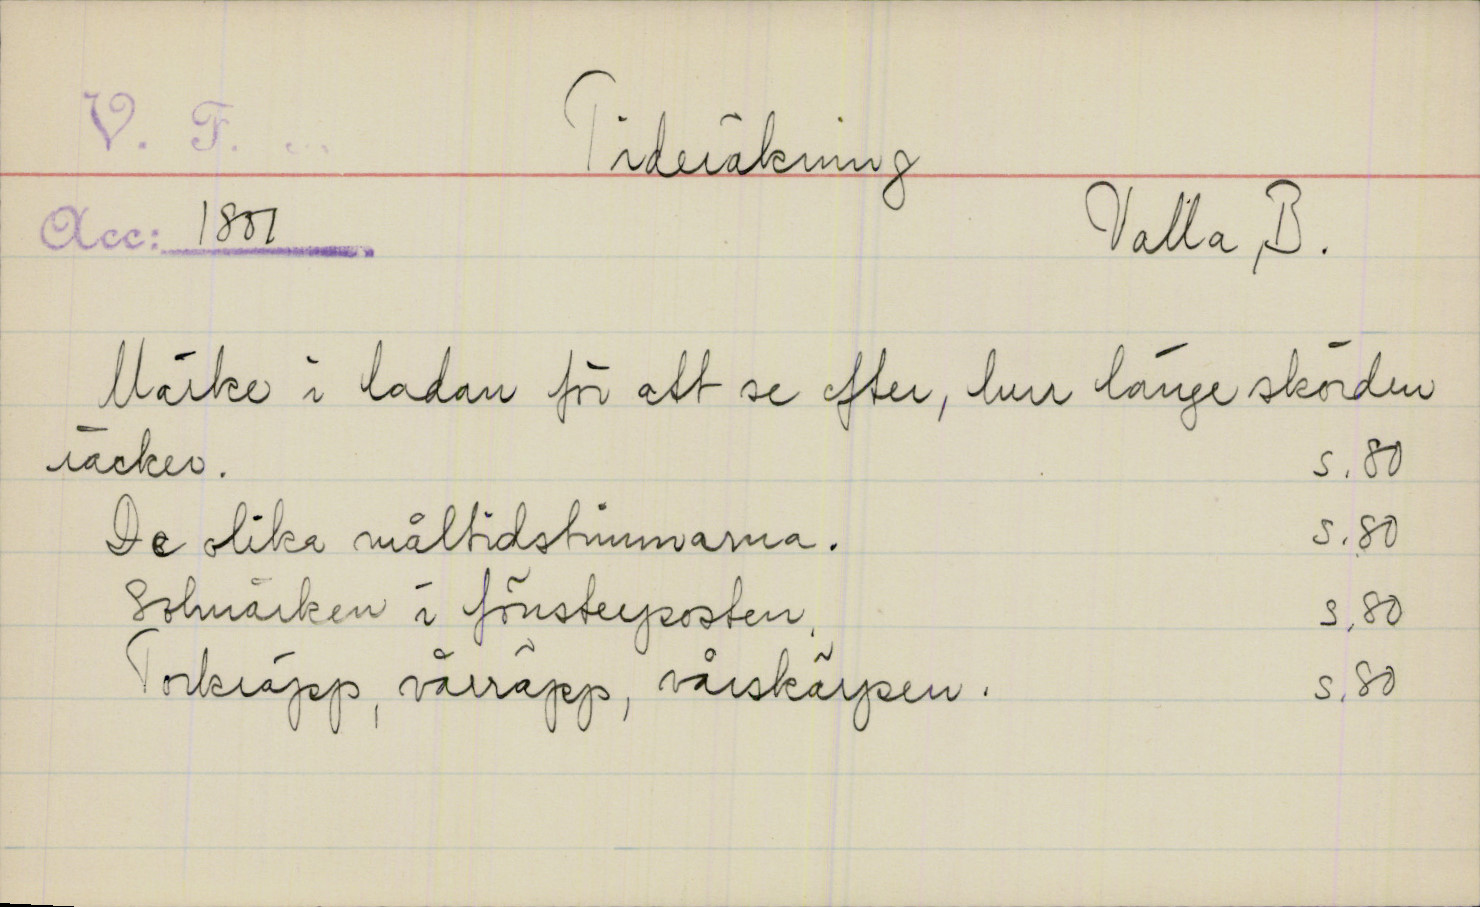 V. F.
Tideräkning
Acc: 1881
Valla, B.
Märke i ladan för att se efter, hur länge skörden
räcker. s. 80
De olika måltidstimmarna. s. 80
Solmärken i fönsterposten. s. 80
Torkräpp, vårräpp, vårskärpen. s. 80